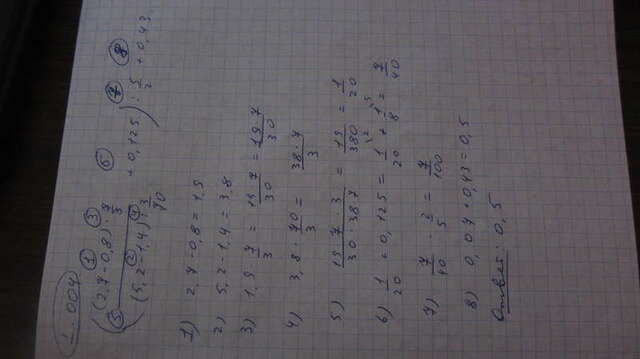 1.004
((2,7-0,8)·7/3 / (5,2-1,4):3/70 + 0,125) : 5/2 + 0,43.
1) 2,7-0,8 = 1,9
2) 5,2-1,4 = 3,8
3) 1,9·7/3 = 19·7/30 = 19·7/30
4) 3,8·70/3 = 38·7/3
5) 19·7·3/30·38·7 = 19/380 = 1/20
6) 1/20 + 0,125 = 1/20 + 1/8 = 7/40
7) 7/40 · 2/5 = 7/100
8) 0,07 + 0,43 = 0,5
Ответ: 0,5